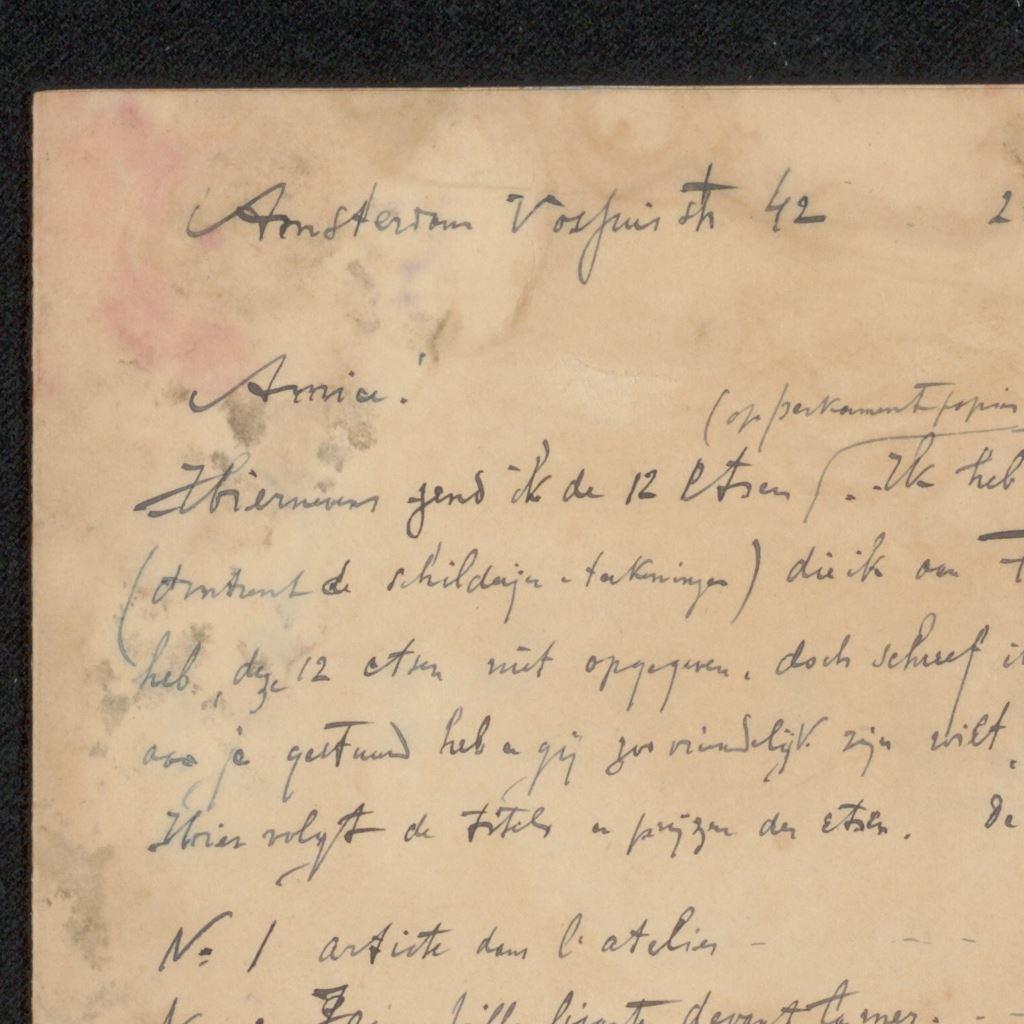 Amsterdam Vossiusstr 42 2
Amice!
(op perkament papier
Hiernevens zend ik de 12 Etsen . Ik heb
(omtrent de schilderijen & teekeningen) die ik aan
heb, deze 12 etsen niet opgegeven, doch schreef
aan je gestuurd heb en gij zoo vriendelijk zijn wilt,
Hier volgt de titels en prijzen der etsen. De
No 1 artiste dans l'atelier -
fille lisante devant la mer. -